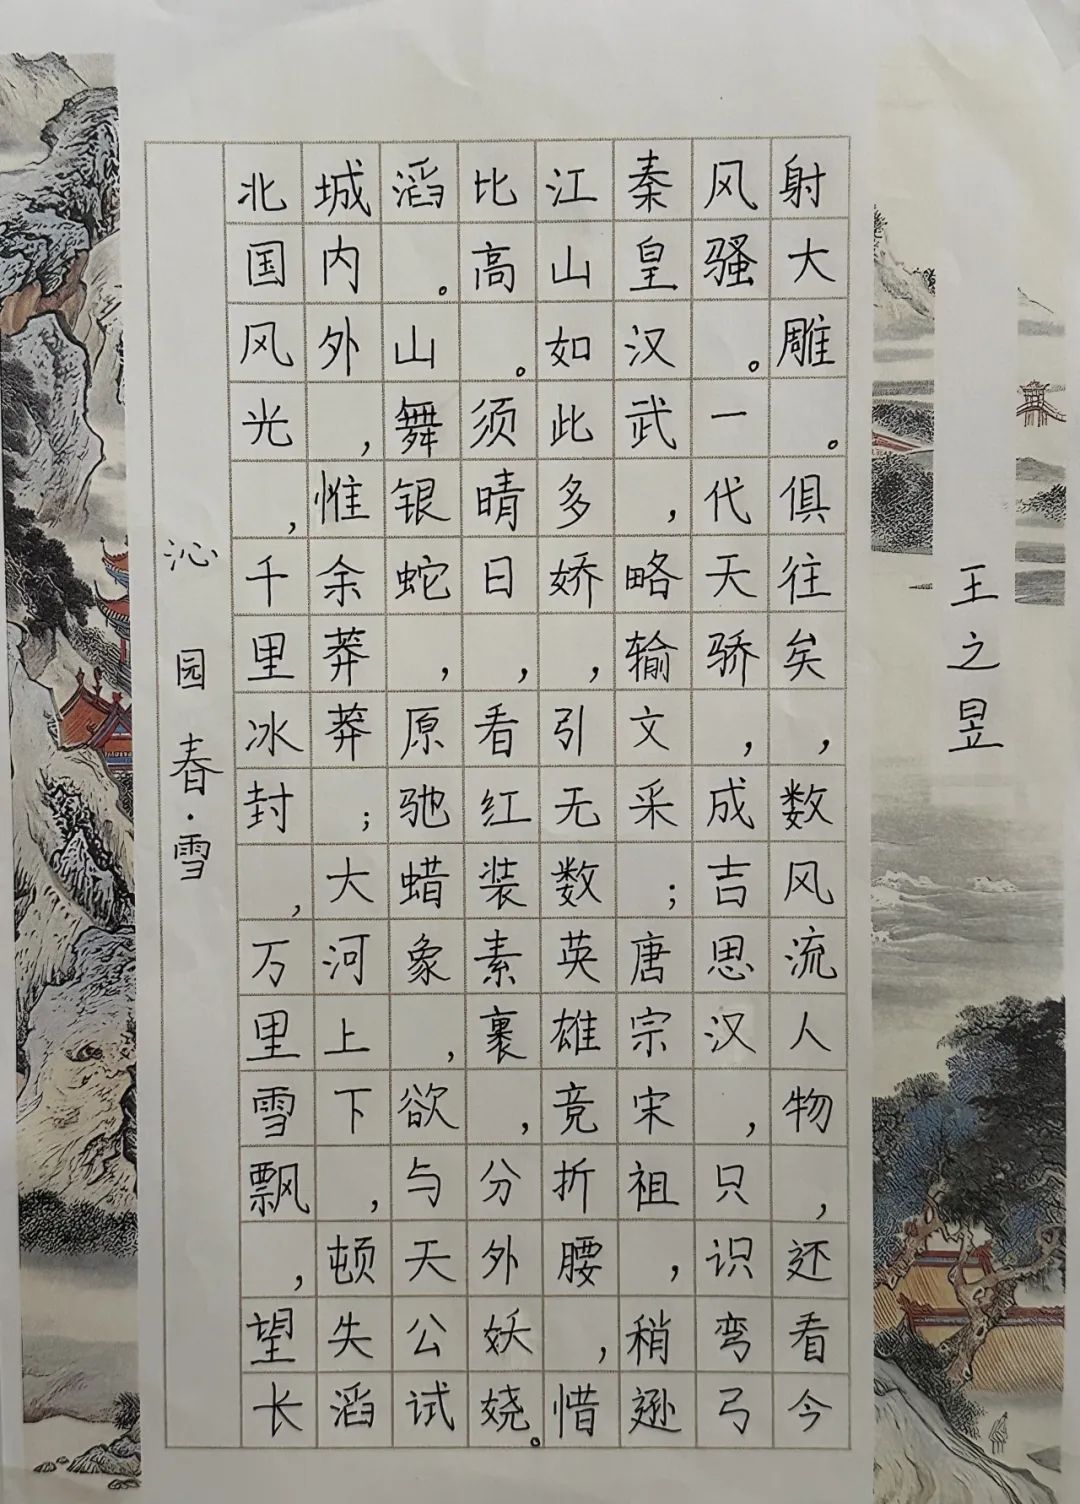 沁园春·雪
北国风光，千里冰封，万里雪飘，望长
城内外，惟余莽莽；大河上下，顿失滔
滔。山舞银蛇，原驰蜡象，欲与天公试
比高。须晴日，看红装素裹，分外妖娆。
江山如此多娇，引无数英雄竞折腰，惜
秦皇汉武，略输文采；唐宗宋祖，稍逊
风骚。一代天骄，成吉思汉，只识弯弓
射大雕。俱往矣，数风流人物，还看今
王之昱